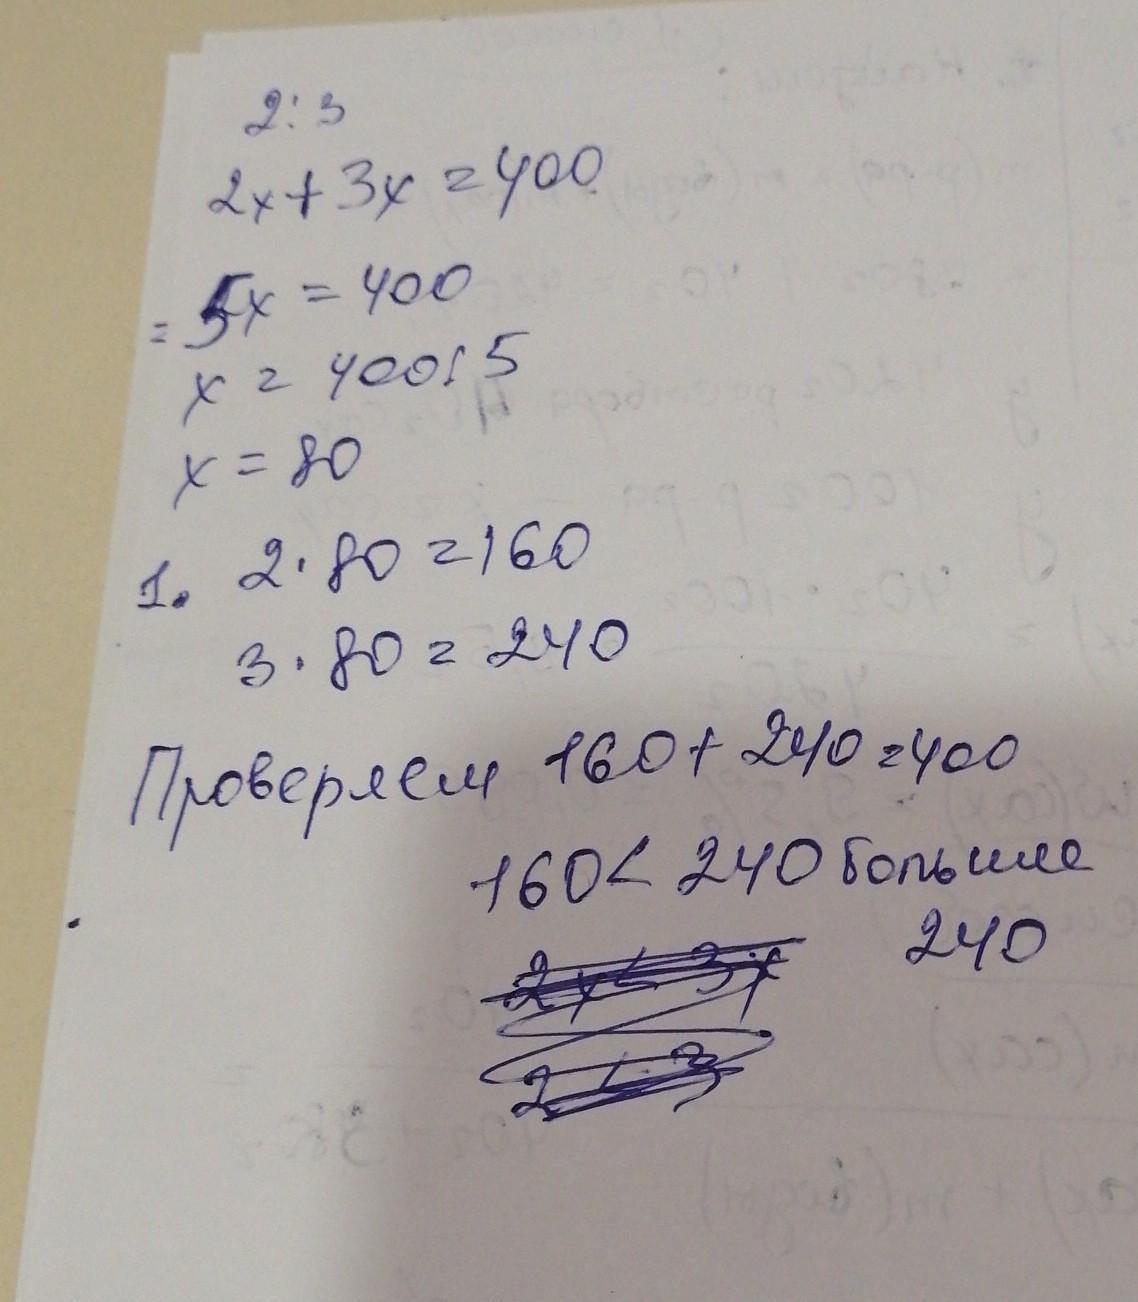 2:3
2x+3x=400
= 5x = 400
x = 400:5
x = 80
1. 2·80=160
3·80=240
Проверяем 160+240=400
160<240 больше
240